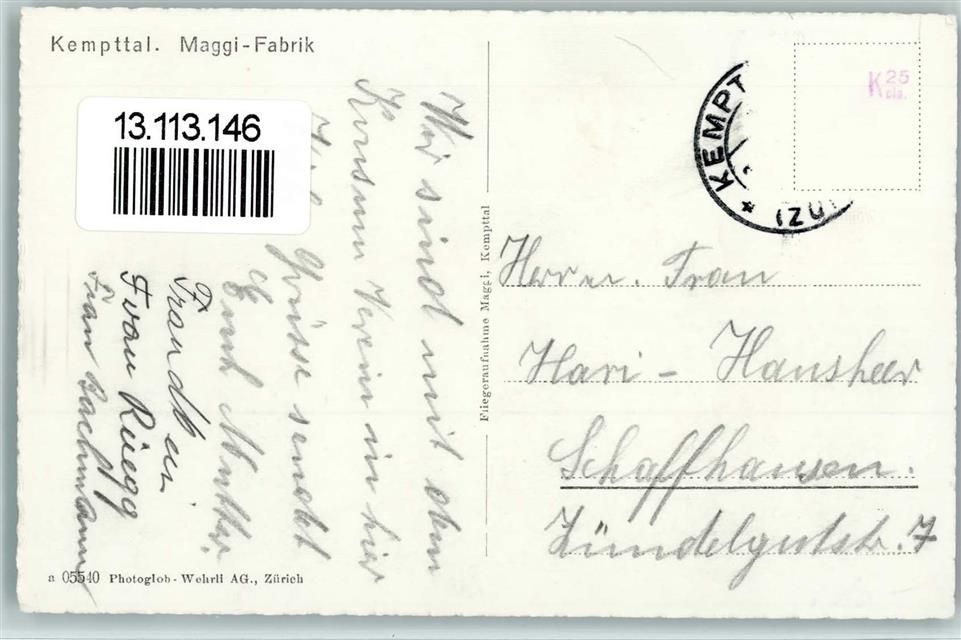 Kempttal. Maggi-Fabrik
13.113.146
Wir sind mit dem
Konsum Verein in hier
Viele Grüsse sendet
Euch Mutter.
Frau
Frau Rüegg
Frau Bachmann
a 05540 Photoglob-Wehrli AG., Zürich
Fliegeraufnahme Maggi, Kempttal
KEMPT
(ZÜ
K 25 cts.
Herr u. Frau
Hari - Hausheer
Schaffhausen.
Zündelgutstr. 7